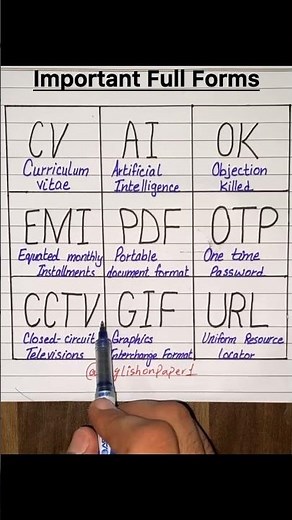 Important Full Forms
CV AI OK
Curriculum vitae
Artificial Intelligence
Objection Killed
EMI PDF OTP
Equated monthly Installments
Portable document format
One time Password
CCTV GIF URL
Closed-circuit Televisions
Graphics Interchange Format
Uniform Resource locator